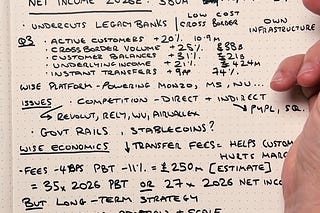 NET INCOME 2026E. 380M
• UNDERCUTS LEGACY BANKS / LOW COST CROSS BORDER / OWN INFRASTRUCTURE
Q3 • ACTIVE CUSTOMERS +20% 10.9M
• CROSS BORDER VOLUME +25% £38B
• CUSTOMER BALANCES +31% £21B
• UNDERLYING INCOME +21% £424M
• INSTANT TRANSFERS +9PP 74%
WISE PLATFORM - POWERING MONZO, MS, NU...
ISSUES • COMPETITION - DIRECT + INDIRECT
↳ REVOLUT, RELY, WU, AIRWALLEX ↳ PYPL, SQ.
• GOVT RAILS, STABLECOINS?
WISE ECONOMICS ↓ TRANSFER FEES = HELPS CUSTOM
HURTS MARG
- FEES -4BPS PBT -11% = £250M [ESTIMATE]
= 35X 2026 PBT OR 27X 2026 NET INCO
BUT LONG-TERM STRATEGY
+ SCALE